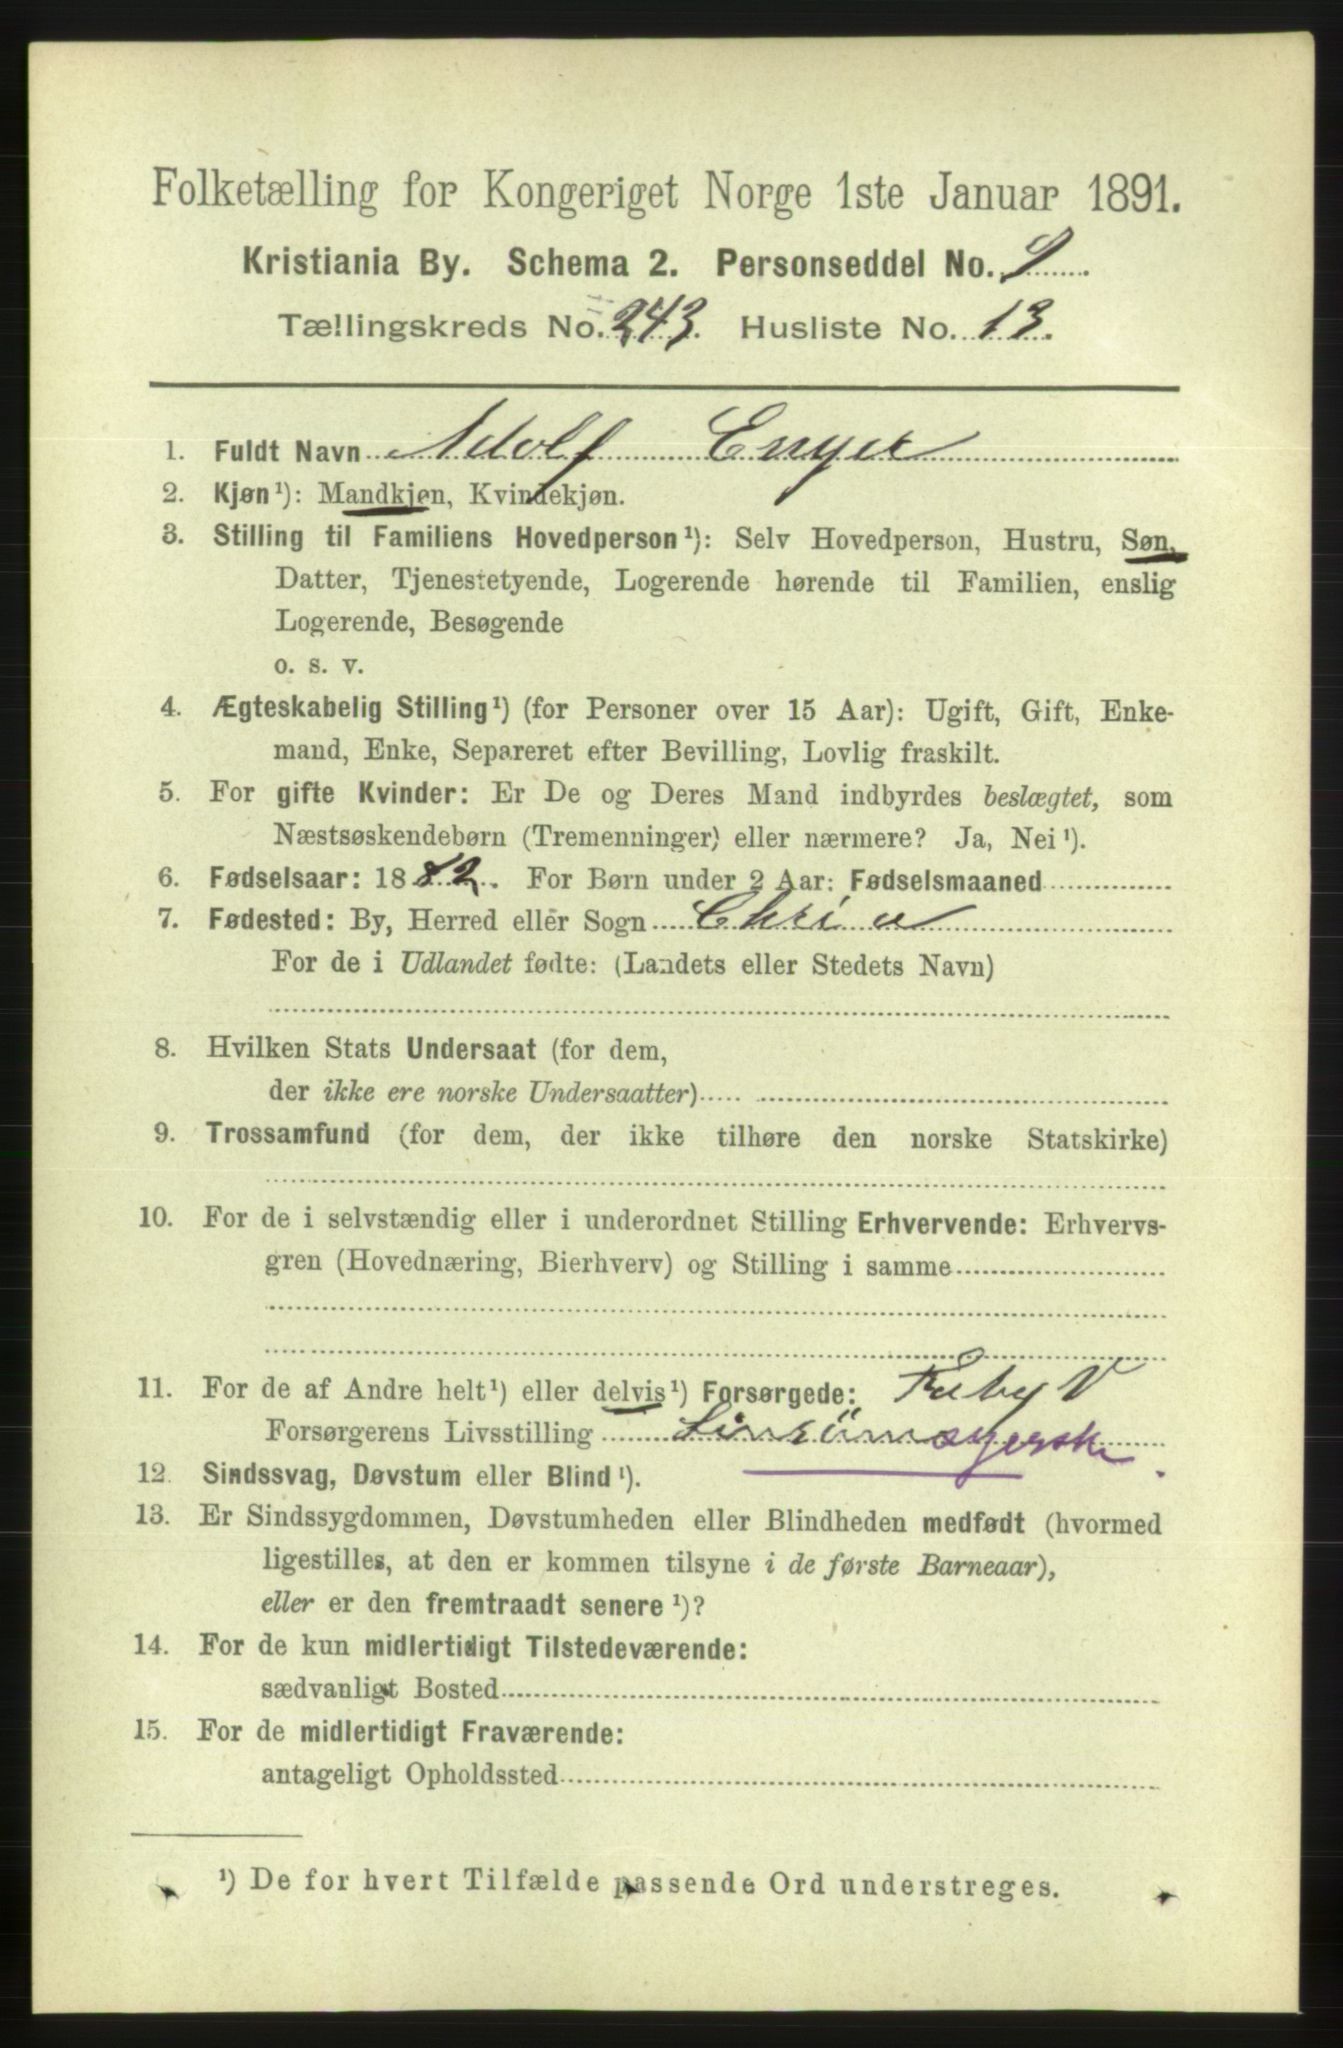 Folketælling for Kongeriget Norge 1ste Januar 1891.
Kristiania By. Schema 2. Personseddel No. 9
Tællingskreds No. 243. Husliste No. 13.
1. Fuldt Navn Adolf Enger
2. Kjøn¹): Mandkjøn, Kvindekjøn.
3. Stilling til Familiens Hovedperson¹): Selv Hovedperson, Hustru, Søn,
Datter, Tjenestetyende, Logerende hørende til Familien, enslig
Logerende, Besøgende
o. s. v.
4. Ægteskabelig Stilling¹) (for Personer over 15 Aar): Ugift, Gift, Enke-
mand, Enke, Separeret efter Bevilling, Lovlig fraskilt.
5. For gifte Kvinder: Er De og Deres Mand indbyrdes beslægtet, som
Næstsøskendebørn (Tremenninger) eller nærmere? Ja, Nei¹).
6. Fødselsaar: 1882. For Børn under 2 Aar: Fødselsmaaned
7. Fødested: By, Herred eller Sogn Chria
For de i Udlandet fødte: (Landets eller Stedets Navn)
8. Hvilken Stats Undersaat (for dem,
der ikke ere norske Undersaatter)
9. Trossamfund (for dem, der ikke tilhøre den norske Statskirke)
10. For de i selvstændig eller i underordnet Stilling Erhvervende: Erhvervs-
gren (Hovednæring, Bierhverv) og Stilling i samme
11. For de af Andre helt¹) eller delvis¹) Forsørgede:
Forsørgerens Livsstilling
12. Sindssvag, Døvstum eller Blind¹).
13. Er Sindssygdommen, Døvstumheden eller Blindheden medfødt (hvormed
ligestilles, at den er kommen tilsyne i de første Barneaar),
eller er den fremtraadt senere¹)?
14. For de kun midlertidigt Tilstedeværende:
sædvanligt Bosted
15. For de midlertidigt Fraværende:
antageligt Opholdssted
¹) De for hvert Tilfælde passende Ord understreges.